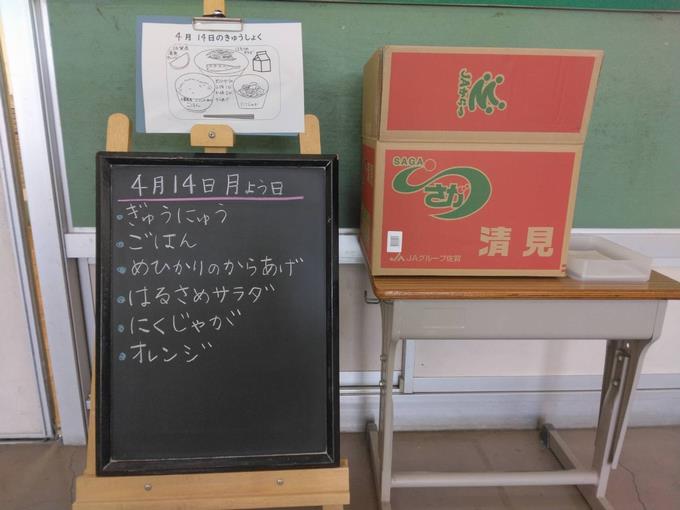 4月14日のきゅうしょく
4月14日月よう日
ぎゅうにゅう
ごはん
めひかりのからあげ
はるさめサラダ
にくじゃが
オレンジ
JAさが
SAGA
さが
清見
JAグループ佐賀